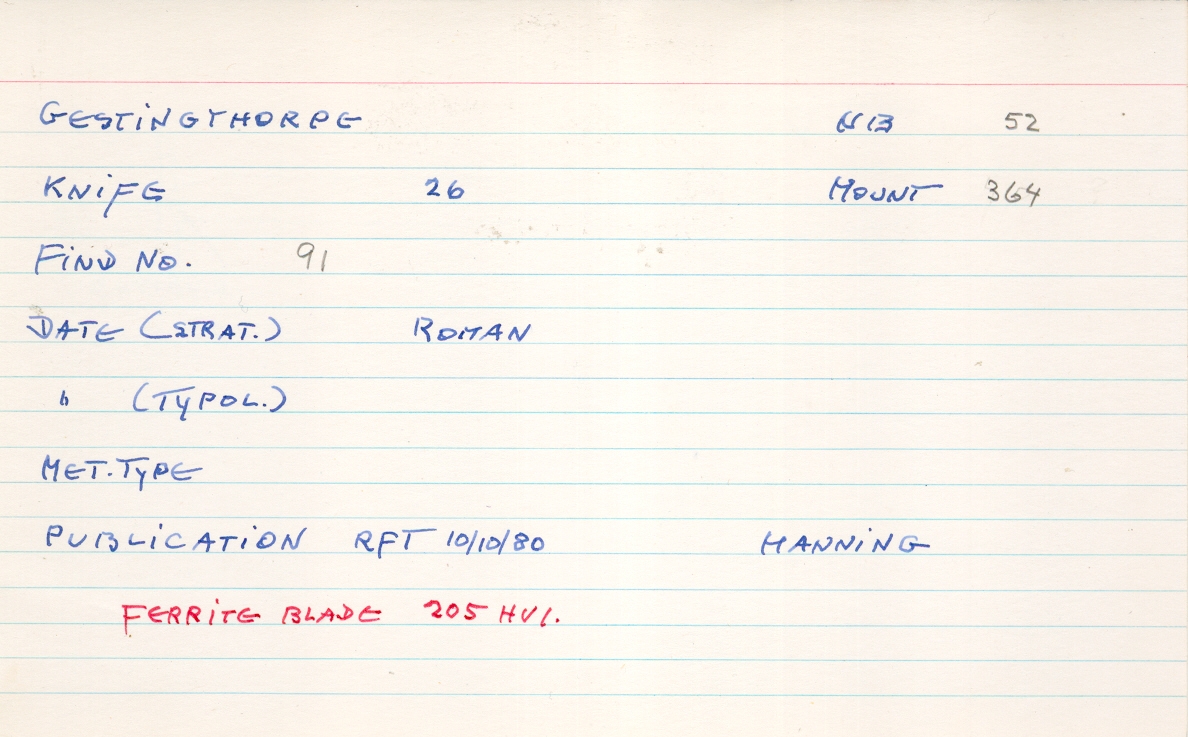 GESTINGTHORPE NB 52
KNIFE 26 MOUNT 364
FIND NO. 91
DATE (STRAT.) ROMAN
" (TYPOL.)
MET. TYPE
PUBLICATION RFT 10/10/80 MANNING
FERRITE BLADE 205 HV1.